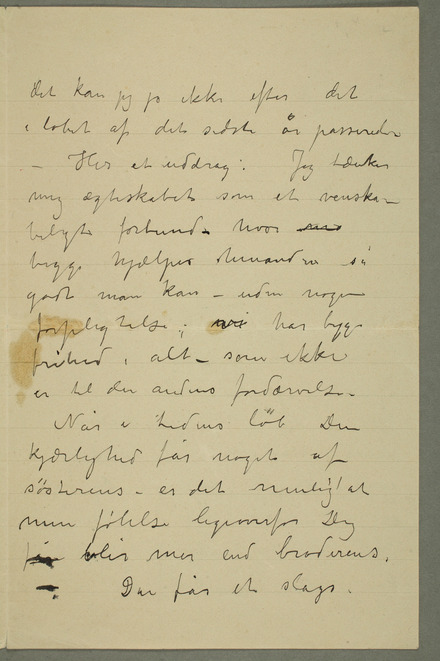 det kan jeg jo ikke efter det
i løbet af det sidste år passerede
– Her et uddrag: Jeg tænker
mig ægteskabet som et venska–
beligt forbund – hvor
begge hjælper hinanden så
godt man kan – uden nogen
forpligtelse; har begge
frihed i alt – som ikke
er til den andens fordærvelse –
Når i tidens löb Din
kjærlighed får noget af
søsterens – er det muligt at
min følelse ligeoverfor Dig
blir mer end broderens.
– Den får et slags.